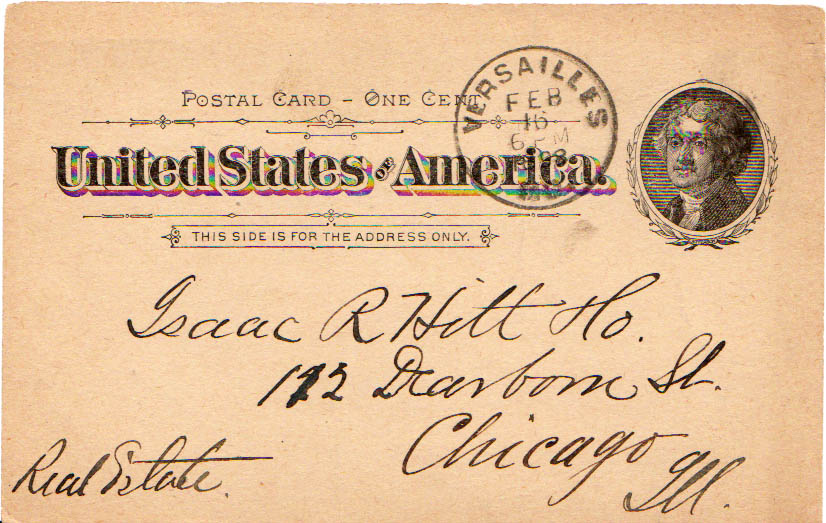 POSTAL CARD - ONE CENT
United States OF America.
THIS SIDE IS FOR THE ADDRESS ONLY.
VERSAILLES
FEB
16
6 PM
Isaac R Hitt Ho.
112 Dearborn St.
Chicago
Ill.
Real Estate.